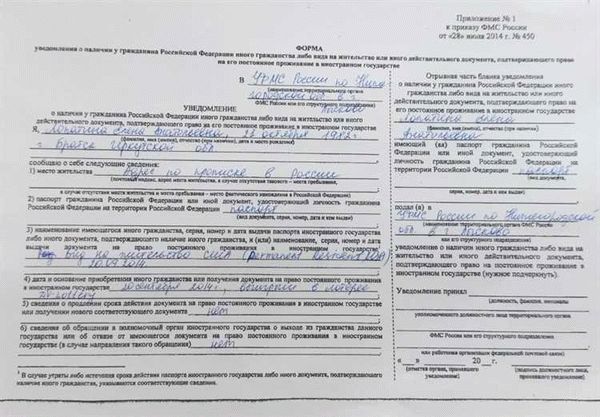 Приложение № 1
к приказу ФМС России
от «28» июля 2014 г. № 450
ФОРМА
уведомления о наличии у гражданина Российской Федерации иного гражданства либо вида на жительство или иного действительного документа, подтверждающего право
на его постоянное проживание в иностранном государстве
В УФМС России по Ниже
(наименование территориального органа
городской обл. в г.
ФМС России или его структурного подразделения)
УВЕДОМЛЕНИЕ
о наличии у гражданина Российской Федерации иного гражданства либо вида на жительство или иного
действительного документа, подтверждающего право на его постоянное проживание в иностранном государстве
Я, Лопатина Елена Анатольевна, 12 октября 1972
(фамилия, имя (имена), отчество (при наличии), дата и место рождения)
г. Братск Иркутской обл
сообщаю о себе следующие сведения:
1) место жительства Адрес по прописке в России
(почтовый индекс, адрес места жительства, в случае отсутствия такового – места пребывания,
в случае отсутствия места жительства и места пребывания – место фактического нахождения в Российской Федерации)
2) паспорт гражданина Российской Федерации или иной документ, удостоверяющий личность гражданина
Российской Федерации на территории Российской Федерации паспорт
(вид документа, серия, номер, дата и кем выдан)
3) наименование имеющегося иного гражданства, серия, номер и дата выдачи паспорта иностранного государства
либо иного документа, подтверждающего наличие иного гражданства, и (или) наименование, серия, номер и дата
выдачи документа на право постоянного проживания в иностранном государстве¹
Вид на жительство США (Permanent Resident
20.09.2014
4) дата и основание приобретения иного гражданства или получения документа на право постоянного проживания
в иностранном государстве 20 сентября 2014г., выигрыш в лотерее
DV-Lottery
5) сведения о продлении срока действия документа на право постоянного проживания в иностранном государстве
или получении нового соответствующего документа нет
6) сведения об обращении в полномочный орган иностранного государства о выходе из гражданства данного
государства или об отказе от имеющегося документа на право постоянного проживания в иностранном
государстве (в случае направления такого обращения) нет
¹ В случае утраты либо истечения срока действия паспорта иностранного государства либо иного документа, подтверждающего
наличие иного гражданства, указываются соответствующие сведения.
Отрывная часть бланка уведомления
о наличии у гражданина Российской Федерации иного
гражданства либо вида на жительство или иного
действительного документа, подтверждающего право на
его постоянное проживание в иностранном государстве
Лопатина Елена
(фамилия, имя (имена), отчество (при наличии)
Анатольевна
имеющий (ая) паспорт гражданина Российской
Федерации или иной документ, удостоверяющий
личность гражданина Российской Федерации на
территории Российской Федерации паспорт
(вид документа,
серия, номер, дата и кем выдан)
подал (а) в
УФМС России по Нижегородской
(наименование территориального органа ФМС России
обл. в г.
или его структурного подразделения)
уведомление о наличии иного гражданства либо вида на
жительство или иного действительного документа,
подтверждающего право на постоянное проживание в
иностранном государстве (нужное подчеркнуть).
Уведомление принял
(должность, фамилия, инициалы
уполномоченного должностного лица территориального органа
ФМС России или его структурного подразделения
или работника организации федеральной почтовой связи)
« » 20 г.
(отметка органа, принявшего уведомление)
(подпись должностного лица, принявшего уведомление)